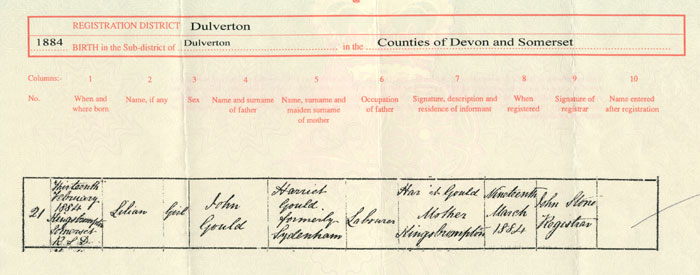 REGISTRATION DISTRICT Dulverton
1884 BIRTH in the Sub-district of Dulverton in the Counties of Devon and Somerset
Columns:- 1 2 3 4 5 6 7 8 9 10
No. When and where born Name, if any Sex Name and surname of father Name, surname and maiden surname of mother Occupation of father Signature, description and residence of informant When registered Signature of registrar Name entered after registration
21
Thirteenth
February
1884
Kingsbrompton
Somerset
R.S.D.
Lilian
Girl
John
Gould
Harriet
Gould
formerly
Sydenham
Labourer
Har et Gould
Mother
Kingsbrompton
Nineteenth
March
1884
John Stone
Registrar